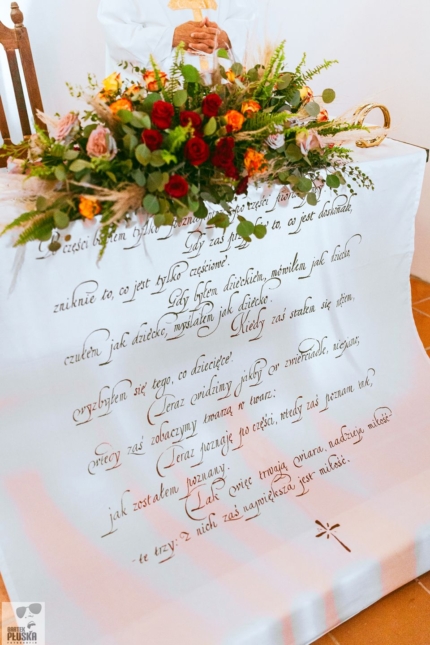 po części
części bowiem tylko
Gdy zaś to, co jest doskonałe,
zniknie to, co jest tylko częściowe.
Gdy byłem dzieckiem, mówiłem jak
czułem jak dziecko, myślałem jak dziecko.
Kiedy zaś stałem się
wyzbyłem się tego, co dziecięce.
Teraz widzimy jakby w zwierciadle, niejasno,
wtedy zaś zobaczymy twarzą w twarz:
Teraz poznaję po części, wtedy zaś poznam tak,
jak zostałem poznany.
Tak więc trwają wiara, nadzieja miłość
- te trzy: z nich zaś największa jest miłość.
BARTEK
PLUSKA
FOTOGRAFIA